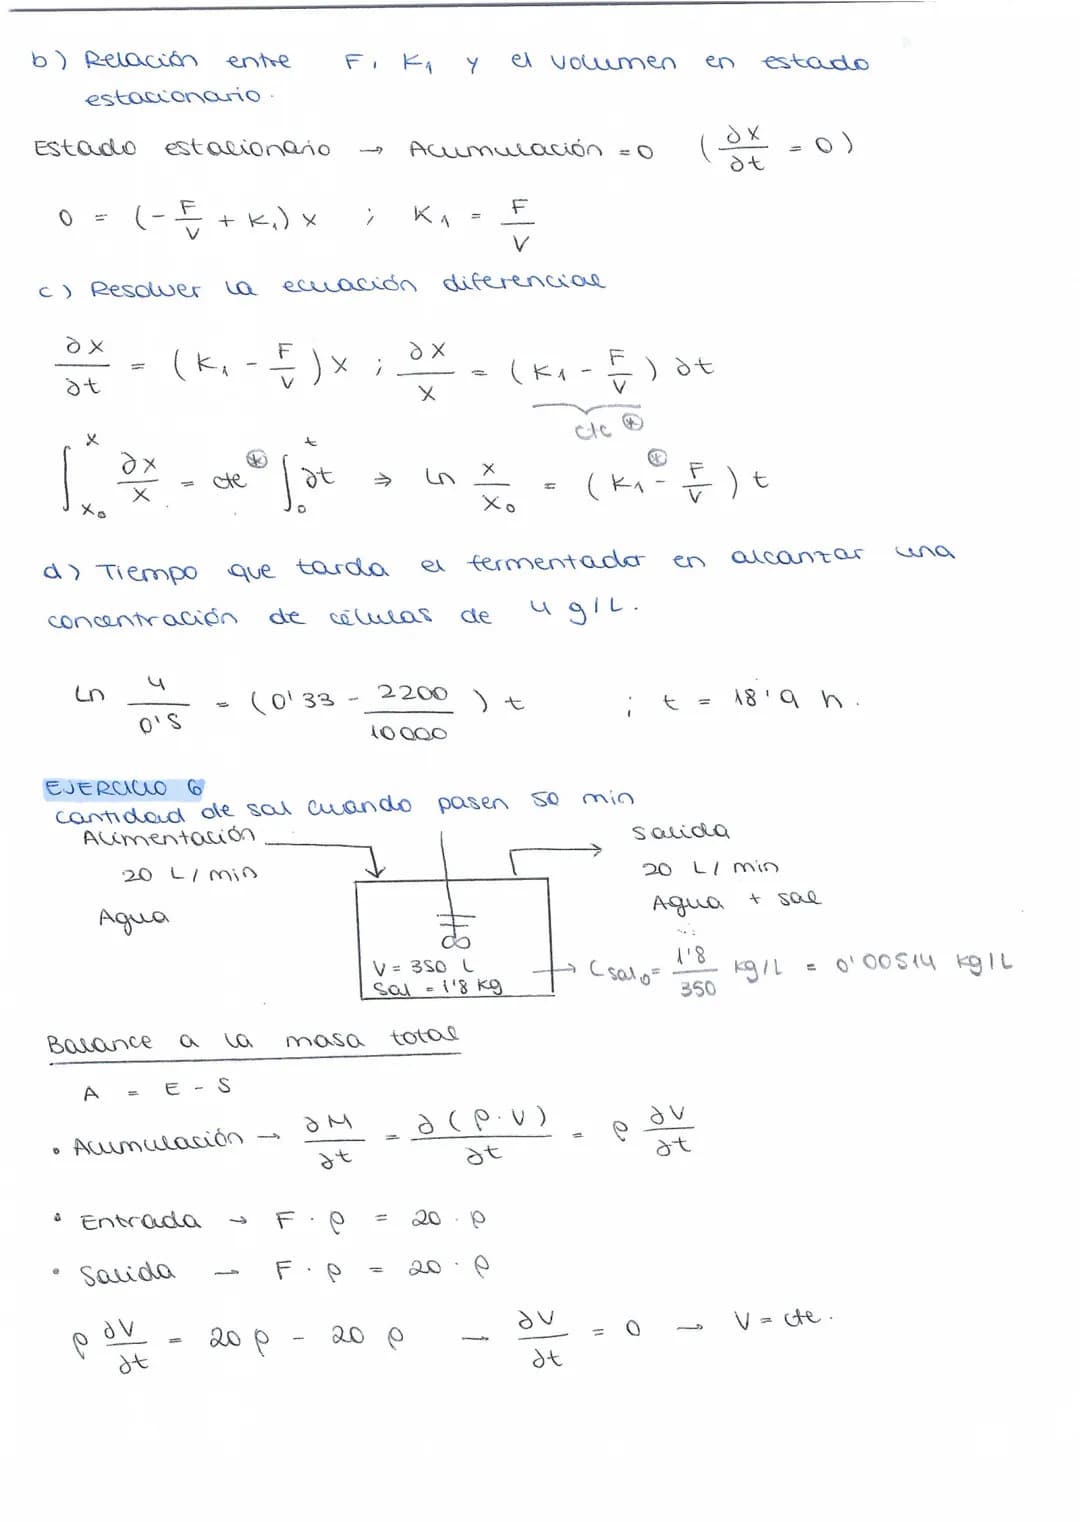 b) Relación entre F, K₁ y el volumen en estado
estacionario.
Estado estacionario → Acumulación = 0 (∂x/∂t = 0)
0 = (-F/V + K₁) x ; K₁ = F/V
c) Resolver la ecuación diferencial
∂x/∂t = (K₁ - F/V) x ; ∂x/x = (K₁ - F/V) ∂t
cte ⊛
∫ₓ₀ˣ ∂x/x = cte ⊛ ∫₀ᵗ ∂t ⇒ Ln x/x₀ = (K₁ - F/V) ⊛ t
d) Tiempo que tarda el fermentador en alcanzar una
concentración de células de 4 g/L.
Ln 4/0'5 = (0'33 - 2200/10000) t ; t = 18'9 h.
EJERCICIO 6
cantidad de sal cuando pasen 50 min
Alimentación
20 L/min
Agua
Salida
20 L/min
Agua + sal
V = 350 L
Sal = 1'8 kg
→ Csal₀ = 1'8/350 kg/L = 0'00514 kg/L
Balance a la masa total
A = E - S
• Acumulación → ∂M/∂t = ∂(ρ·V)/∂t = ρ ∂V/∂t
• Entrada → F · ρ = 20 · ρ
• Salida → F · ρ = 20 · ρ
ρ ∂V/∂t = 20 ρ - 20 ρ → ∂V/∂t = 0 → V = cte.